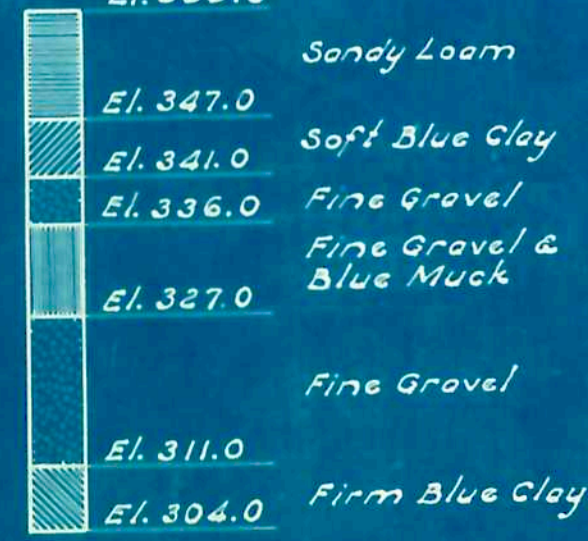 Sandy Loam
El. 347.0
Soft Blue Clay
El. 341.0
Fine Gravel
El. 336.0
Fine Gravel &
Blue Muck
El. 327.0
Fine Gravel
El. 311.0
Firm Blue Clay
El. 304.0